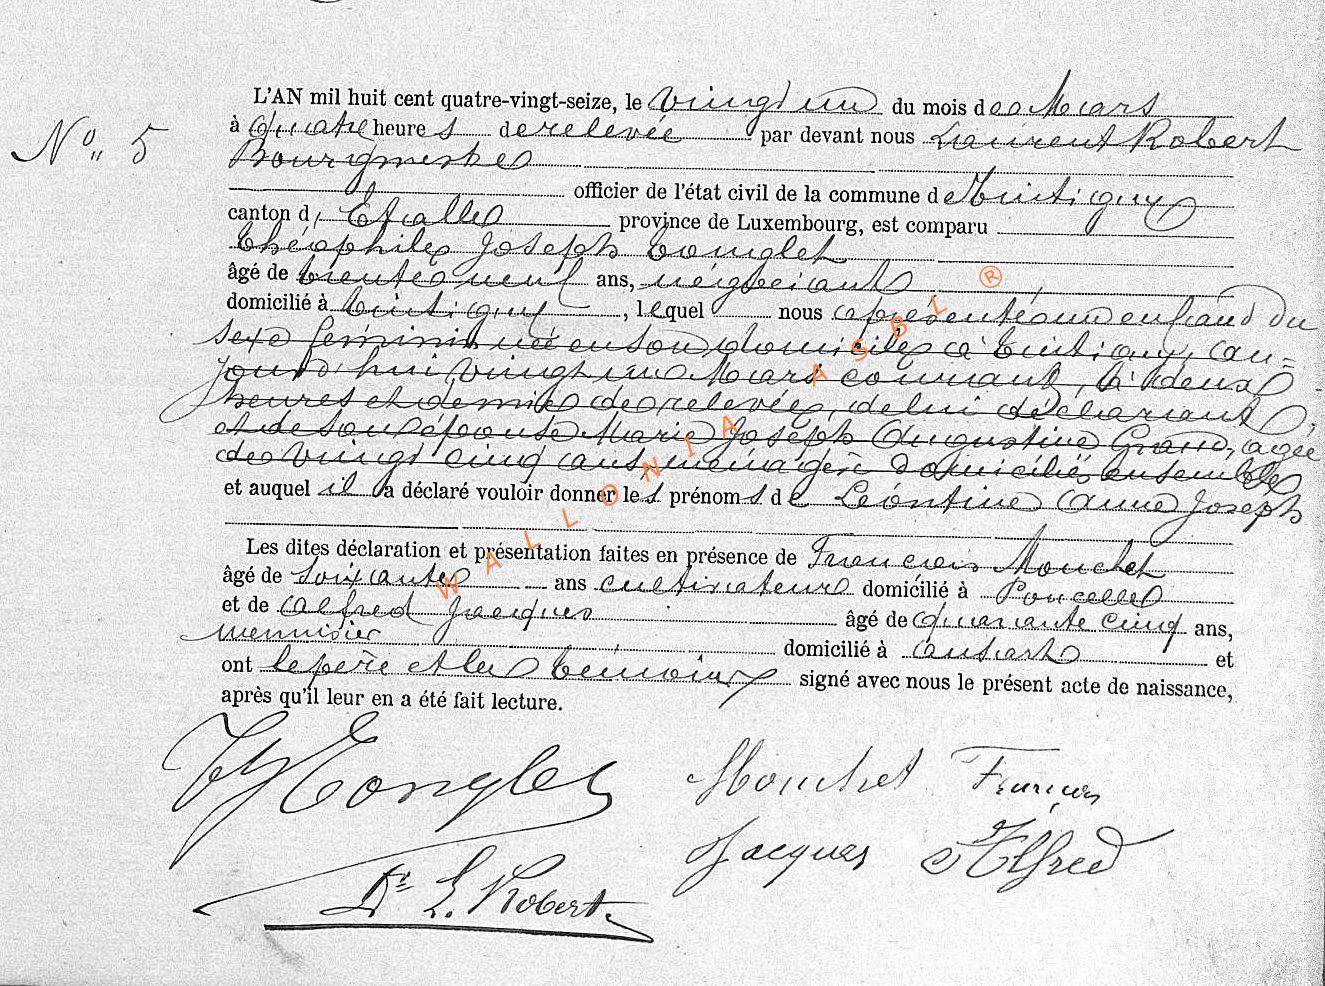 L'AN mil huit cent quatre-vingt-seize, le vingt un du mois de Mars
N° 5
à quatre heures de relevée par devant nous Laurent Robert
Bourgmestre
officier de l'état civil de la commune de Tintigny
canton d'Etalle province de Luxembourg, est comparu
Théophile Joseph Tonglet
âgé de trente neuf ans, négociant
domicilié à Tintigny, lequel nous a présenté un enfant du
sexe féminin née en son domicile à Tintigny, au-
jourd'hui vingt un Mars courant, à deux
heures et demie de relevée, de lui déclarant
et de son épouse Marie Joseph Augustine Grand, agée
de vingt cinq ans, ménagère domiciliés ensemble
et auquel il a déclaré vouloir donner les prénoms de Léontine Anne Joseph
Les dites déclaration et présentation faites en présence de François Mouchet
âgé de soixante ans cultivateur domicilié à Poncelle
et de Alfred Jacques âgé de quarante cinq ans,
menuisier domicilié à Ansart et
ont le père et les témoins signé avec nous le présent acte de naissance,
après qu'il leur en a été fait lecture.
Tonglet
Mouchet François
Jacques Alfred
Dr L. Robert.
WALLONIA ASBL ®